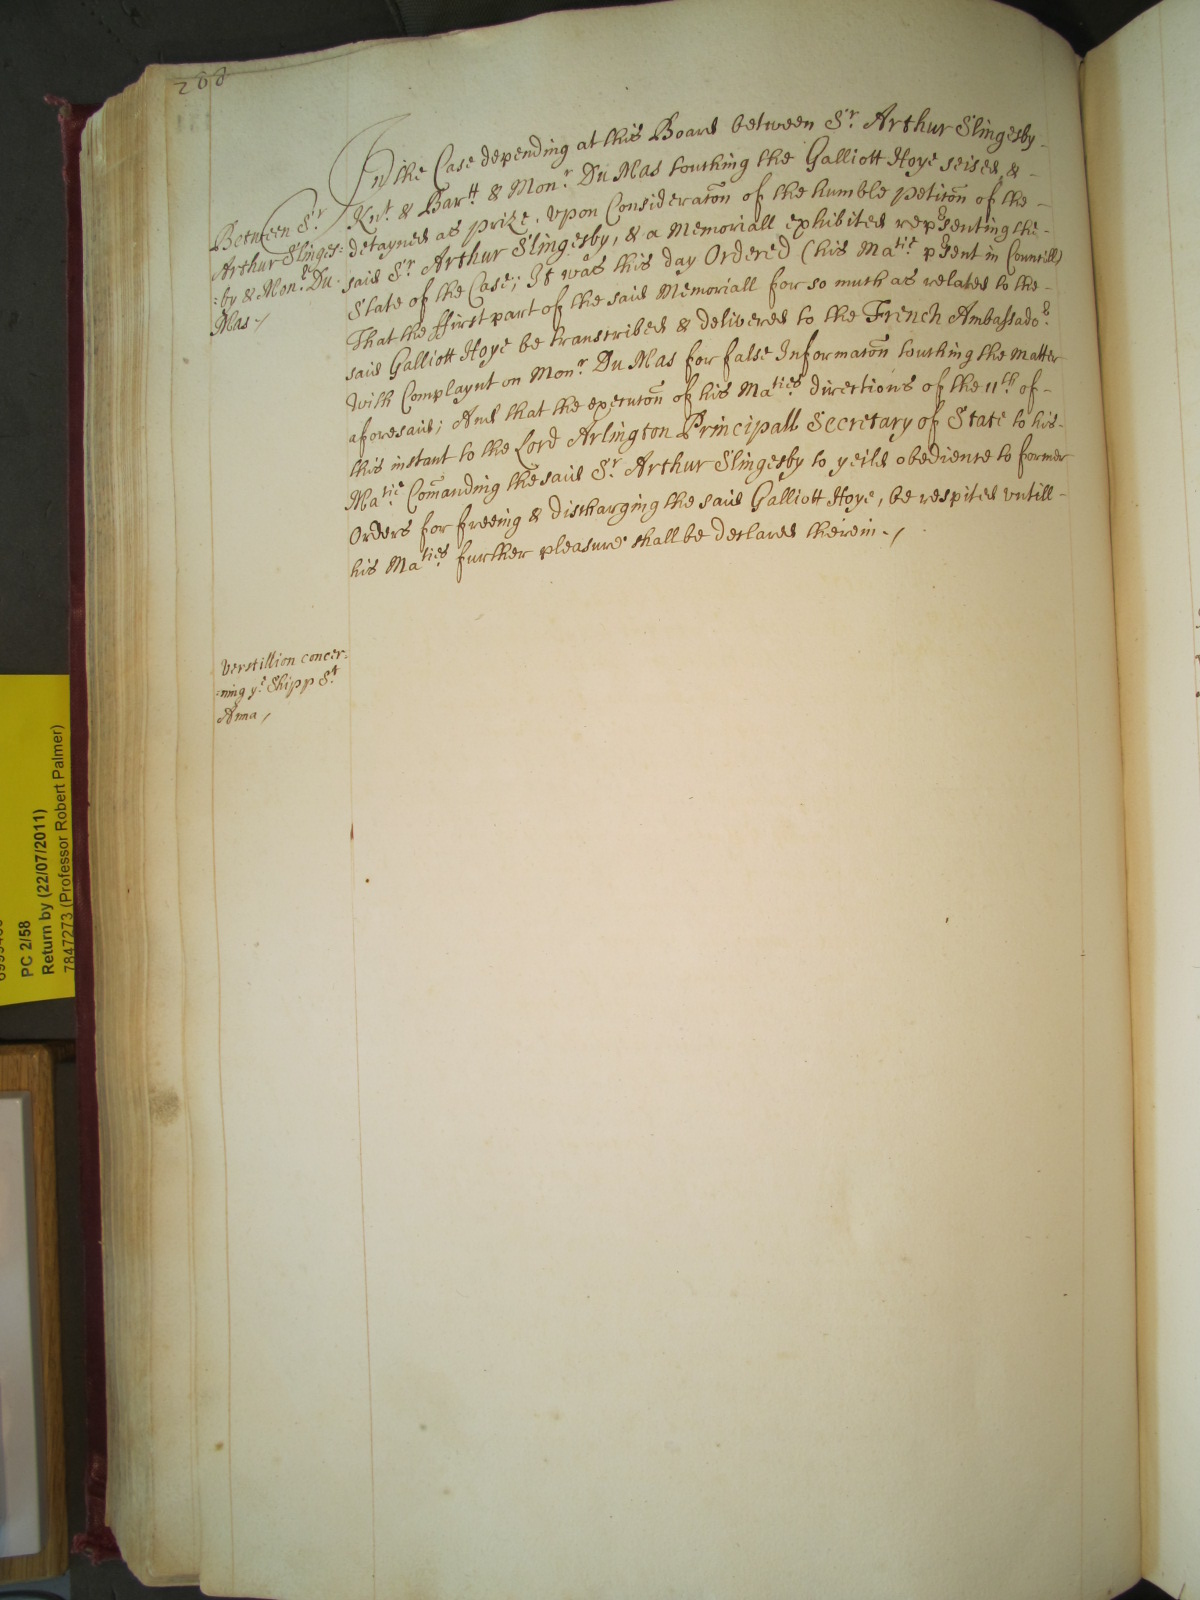 288
In the Case depending at this Board between Sr. Arthur Slingesby-
Knt. & Bartt & Monr. Du Mas touching the Galliott Hoye seised, & -
detayned as prize, Upon Consideratōn of the humble petitōn of the -
said Sr. Arthur Slingesby, & a Memoriall exhibited rep̃senting the -
State of the Case; It was this day Ordered (his Matie p̃sent in Councill)
That the ffirst part of the said Memoriall for so much as related to the -
said Galliott Hoye be transcribed & delivered to the French Ambassador.
with Complaynt on Monr. Du Mas for false Informatōn touching the matter
aforesaid; And that the executōn of his Maties directions of the 11th of -
this instant to the Lord Arlington Principall Secretary of State to his -
Matie Com̄anding the said Sr. Arthur Slingesby to yeild obedience to former
Orders for freeing & discharging the said Galliott Hoye, be respited untill -
his Maties further pleasure shall be declared therein -/
Between Sr
Arthur Slinges=
=by & Monr. Du
Mas -/
Verstillion concer=
=ning ye Shipp St
Anna /
PC 2/58
Return by (22/07/2011)
7847273 (Professor Robert Palmer)